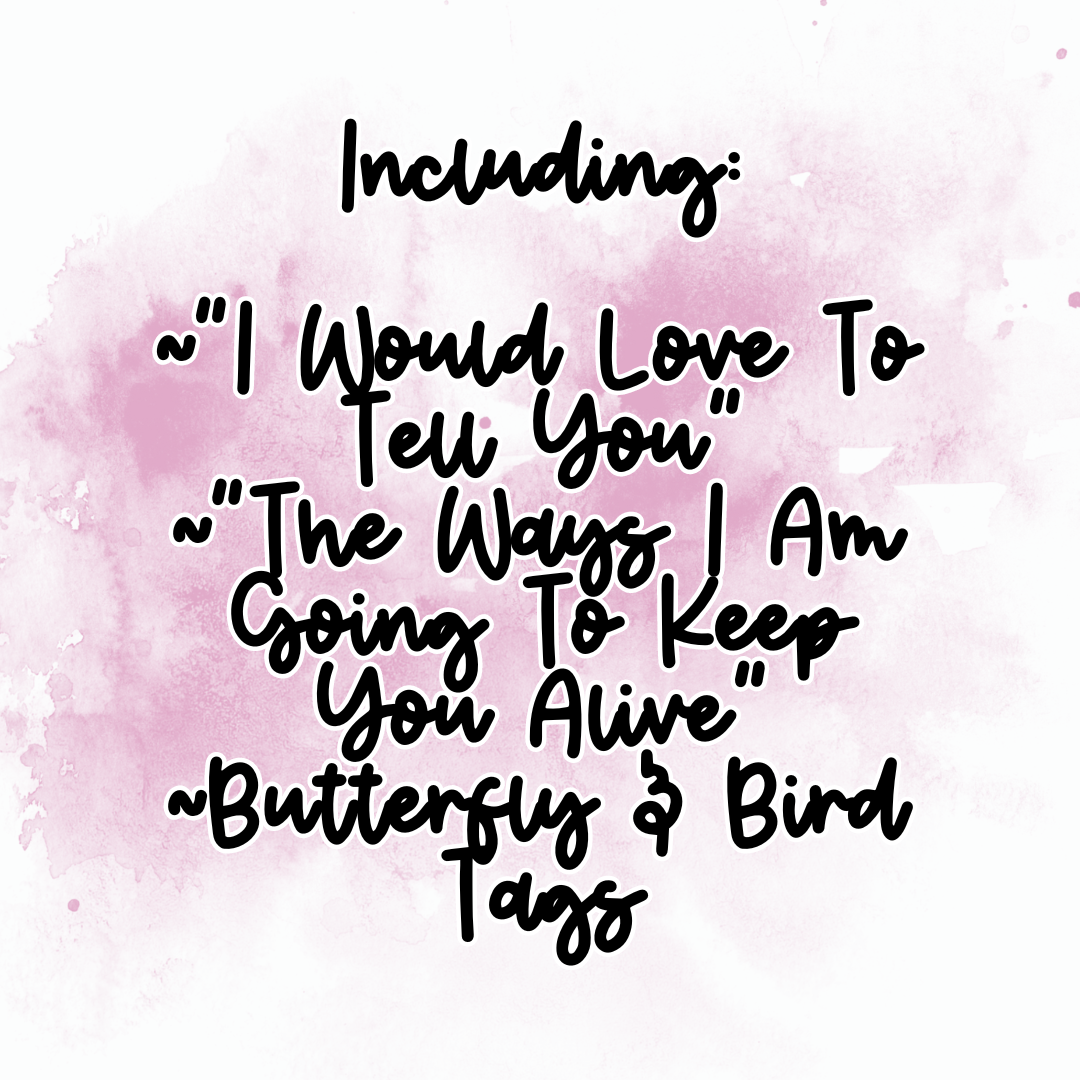 Including:
~"I Would Love To
Tell You"
~"The Ways I Am
Going To Keep
You Alive"
~Butterfly & Bird
Tags